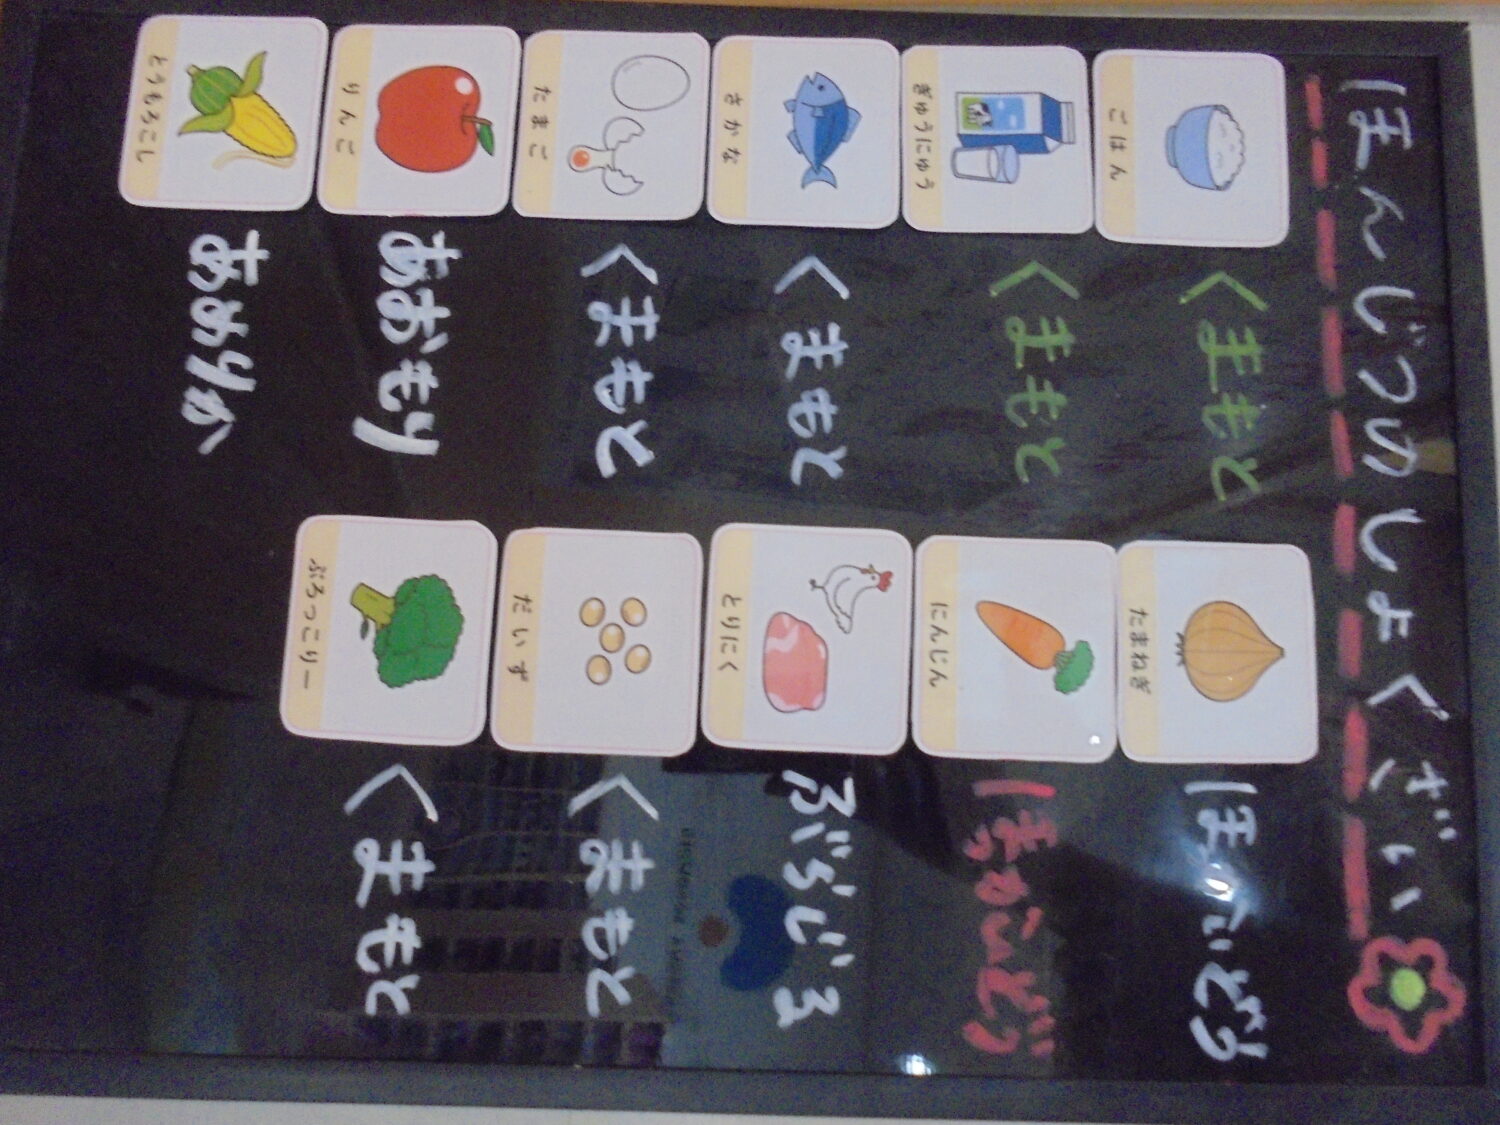 ほんじつのしょくざい
ごはん くまもと
ぎゅうにゅう くまもと
さかな くまもと
たまご くまもと
りんご あおもり
とうもろこし あめりか
たまねぎ ほっかいどう
にんじん ほっかいどう
とりにく ぶらじる
だいず くまもと
ぶろっこりー くまもと